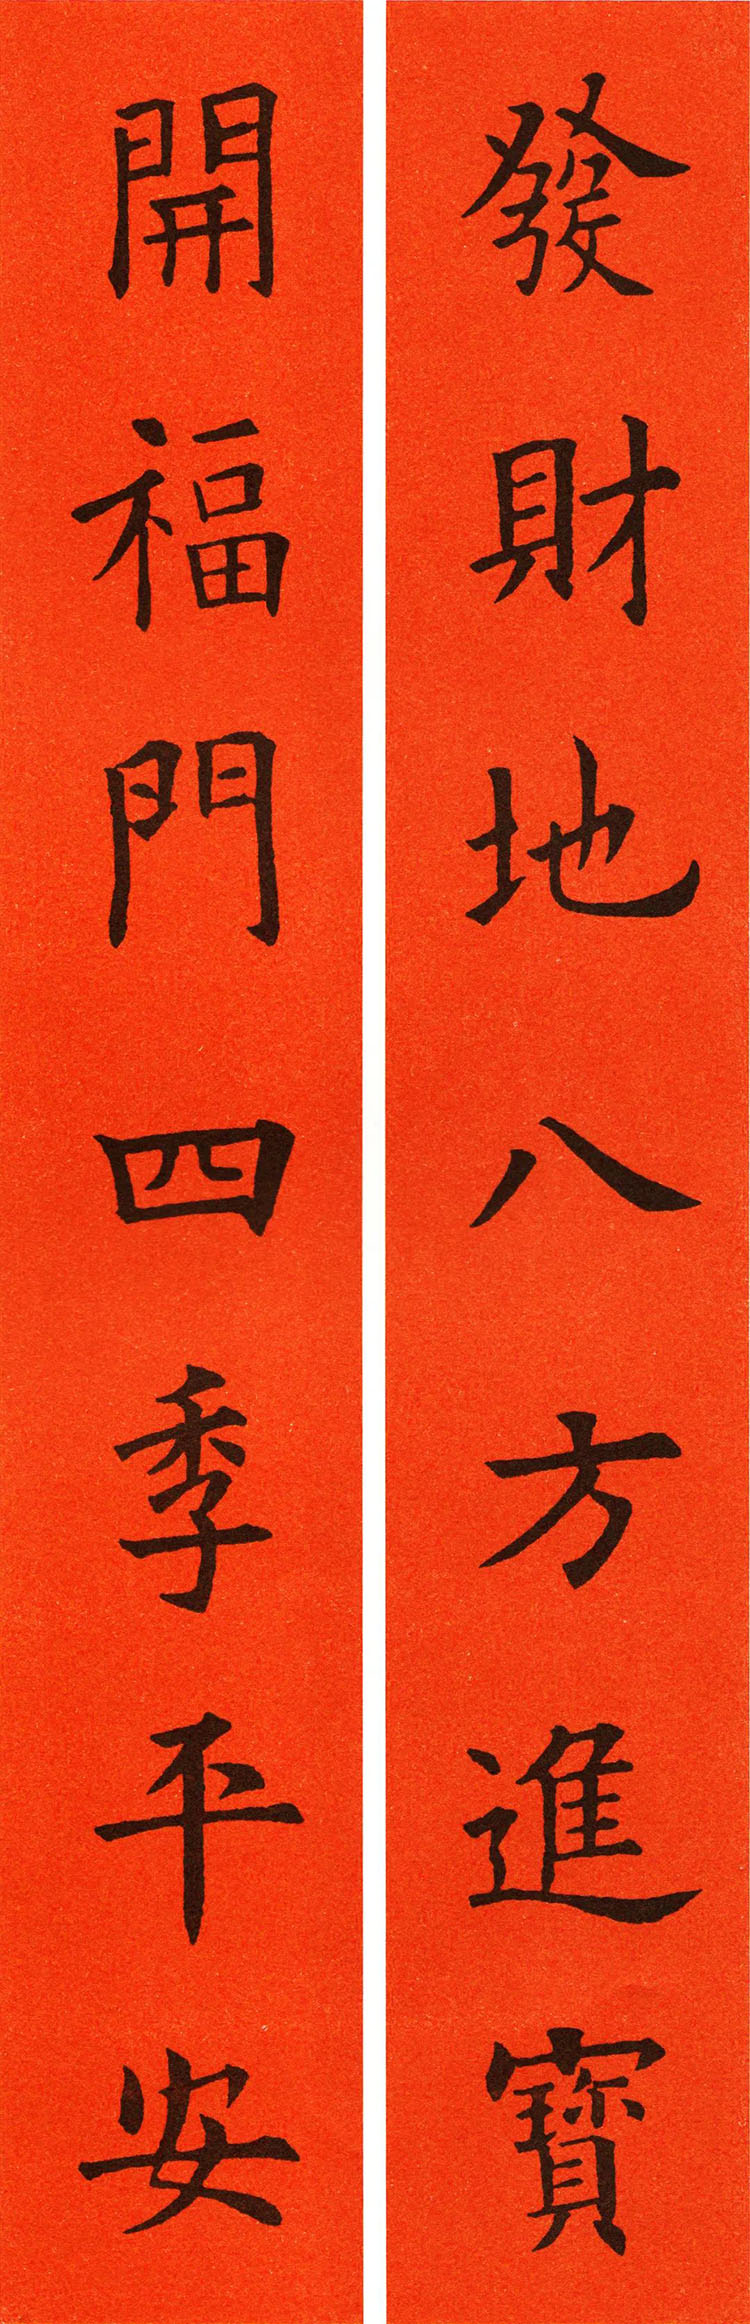 發財地八方進寶
開福門四季平安